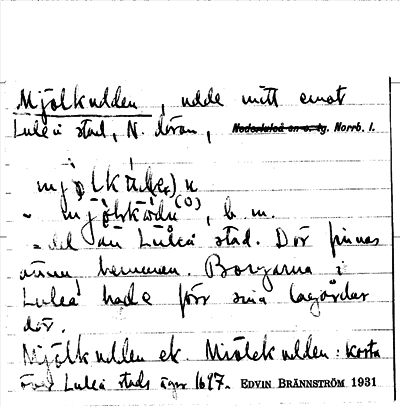 Mjölkudden, udde mitt emot
Luleå stad, N. déran, Nederluleå sn o. tg. Norrb. l.
mjölkudd(e)n
b. m.
del av Luleå stad. Där finnas
ännu hemman. Borgarna i
Luleå hade förr sina lagårdar
där.
Mjölkudden ek. Miölckudden: Karta
över Luleå stads ägor 1697. EDVIN BRÄNNSTRÖM 1931